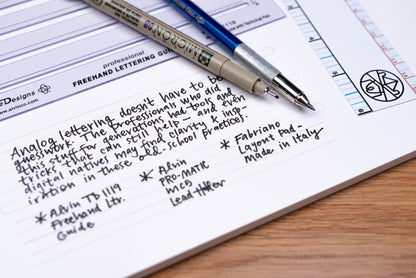 FDesigns
www.alvinco.com
professional
FREEHAND LETTERING GU
1119
with Technical Pen
MICRON 08
Analog lettering doesn't have to be
guesswork. The professionals who did
this stuff for generations had tools and
tricks that can still help — and even
digital natives may find clarity & insp-
iration in these old-school practices.
* Alvin TD1119
Freehand Ltr.
Guide
* Alvin
PRO-MATIC
MC5
Lead Hldr
* Fabriano
Layout Pad -
made in Italy